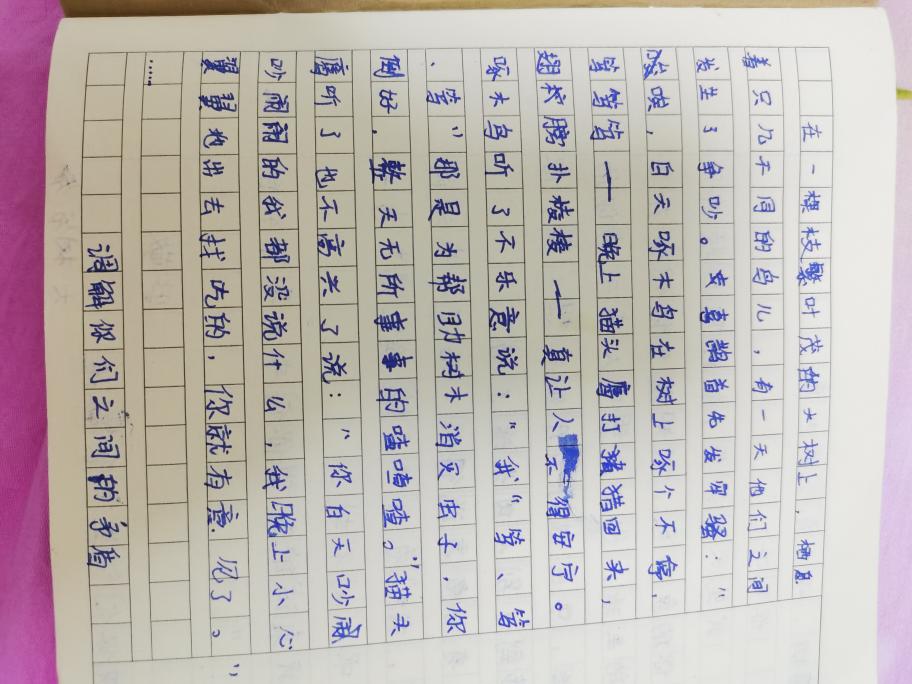 在一棵枝繁叶茂的大树上，栖息
着只几不同的鸟儿，有一天他们之间
发生了争吵。喜鹊首先发牢骚：“
唉，白天啄木鸟在树上啄个不停，
笃笃笃——晚上猫头鹰打猪猎回来，
翅膀扑棱棱——真让人不得安宁。
啄木鸟听了不乐意说：“我“笃、笃
、笃”那是为帮助树木消灭虫子，你
倒好，整天无所事事的喳喳喳。”猫头
鹰听了也不高兴了说：“你白天吵闹
吵闹闹的我都没说什么，我晚上小心
翼翼地出去找吃的，你就有意见了。
”
……
调解你们之间的矛盾